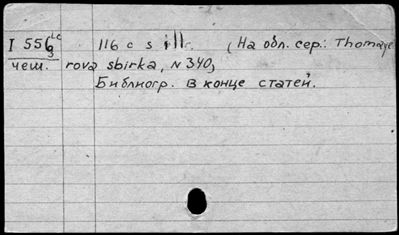 - 2 -
I 556 LC 116 c s ill. (На обл. сер.: Thomaye
3
чеш. rova sbirka, N 340)
Библиогр. в конце статей.